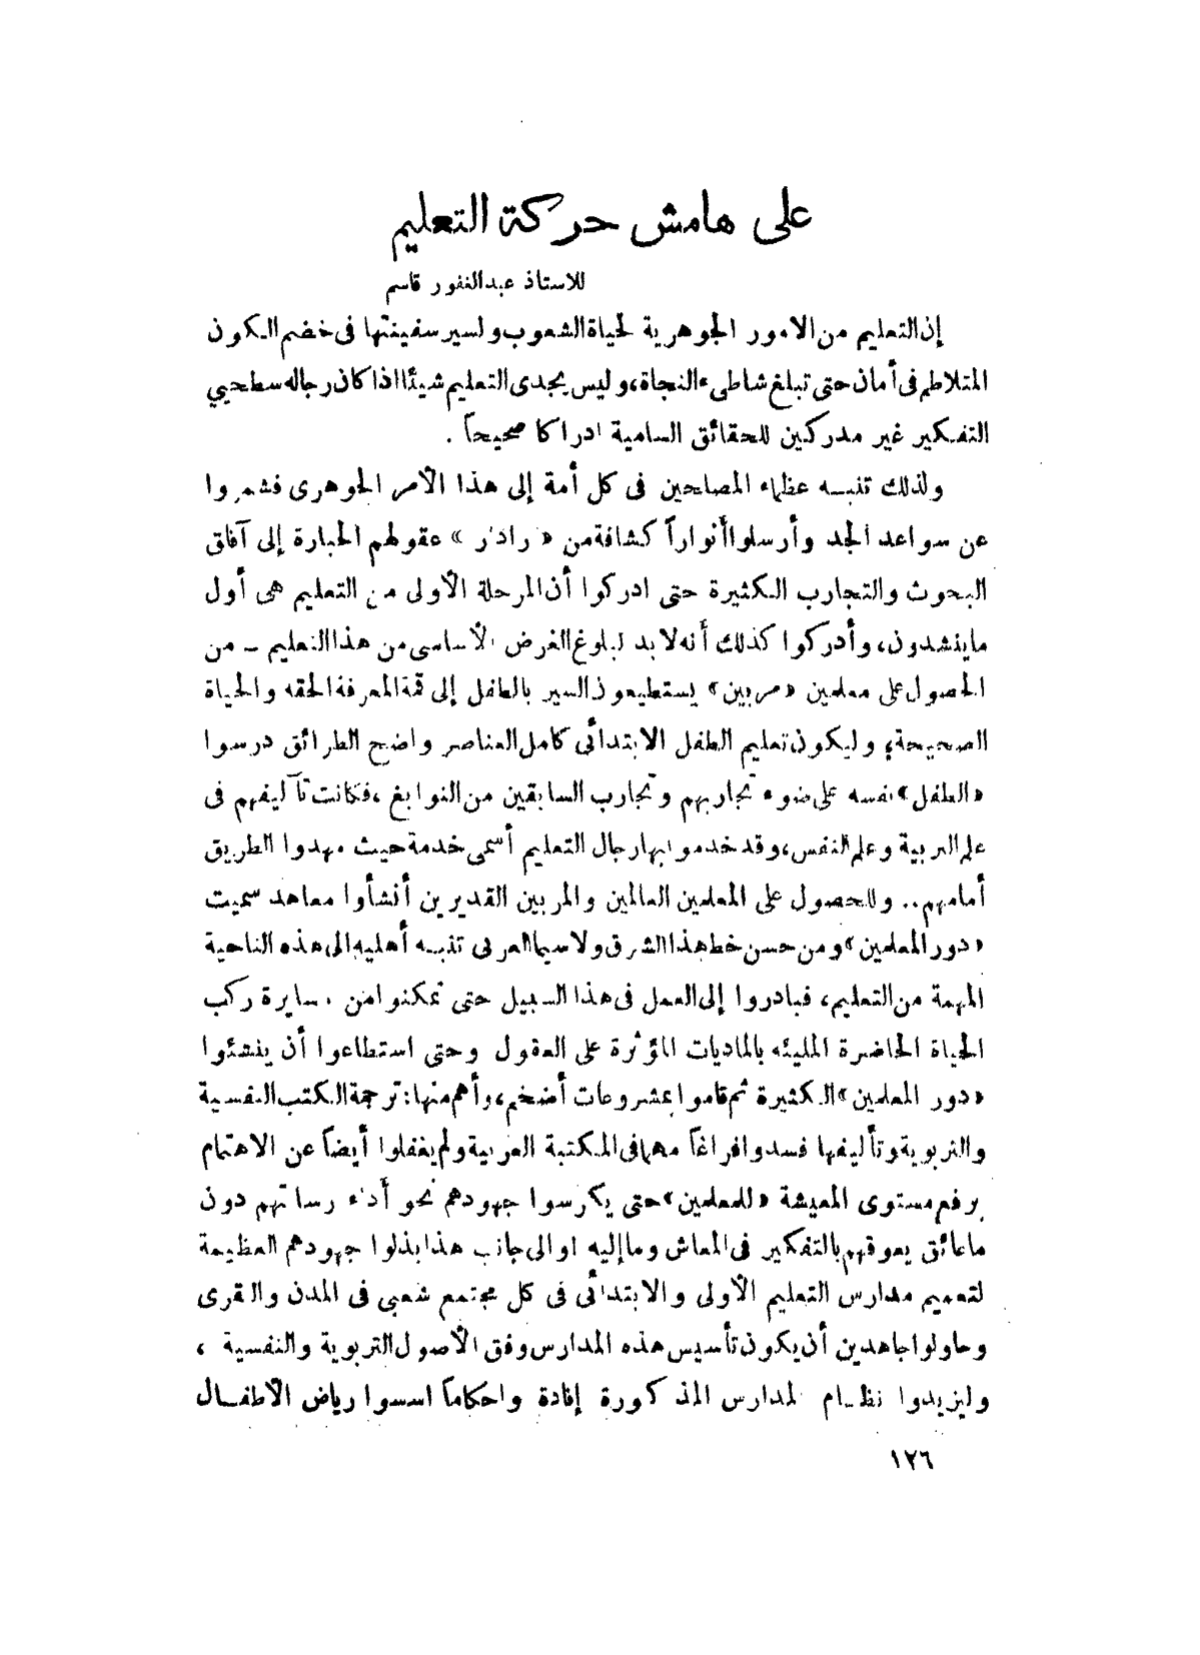 على هامش حركة التعليم
للاستاذ عبدالغفور قاسم
إن التعليم من الامور الجوهرية لحياة الشعوب ولسير سفينتها فى خضم الكون
المتلاطم فى أمان حتى تبلغ شاطىء النجاة، وليس يجدى التعليم شيئا اذا كان رجاله سطحيي
التفكير غير مدركين للحقائق السامية ادراكا صحيحاً .
ولذلك تنبه عظماء المصلحين فى كل أمة إلى هذا الأمر الجوهرى فشمروا
عن سواعد الجد وأرسلوا أنواراً كشافة من « رادار » عقولهم الجبارة إلى آفاق
البحوث والتجارب الكثيرة حتى ادركوا أن المرحلة الأولى من التعليم هى أول
ما ينشدون، وأدركوا كذلك أنه لا بد لبلوغ الغرض الأساسى من هذا التعليم – من
الحصول على معلمين «مربين» يستطيعون السير بالطفل إلى قمة المعرفة الحقه والحياة
الصحيحة؛ وليكون تعليم الطفل الابتدائى كامل العناصر واضح الطرائق درسوا
«الطفل» نفسه على ضوء تجاربهم وتجارب السابقين من النوابغ ، فكانت تآليفهم فى
علم التربية وعلم النفس، وقد خدموا بها رجال التعليم أسمى خدمة حيث مهدوا الطريق
أمامهم.. وللحصول على المعلمين العالمين والمربين القديرين أنشأوا معاهد سميت
«دور المعلمين» ومن حسن خط هذا الشرق ولا سيما العربى تنبه أهليه الى هذه الناحية
المهمة من التعليم، فبادروا إلى العمل فى هذا السبيل حتى تمكنوا من مسايرة ركب
الحياة الحاضرة المليئه بالماديات المؤثرة على العقول وحتى استطاعوا أن ينشئوا
«دور المعلمين» الكثيرة ثم قاموا بمشروعات أضخم، وأهم منها: ترجمة الكتب النفسية
والتربوية وتأليفها فسدوا فراغاً مهما فى المكتبة العربية ولم يغفلوا أيضاً عن الاهتمام
برفع مستوى المعيشة «للمعلمين» حتى يكرسوا جهودهم نحو أداء رسالتهم دون
ما عائق يعوقهم بالتفكير فى المعاش وما إليه او الى جانب هذا بذلوا جهودهم العظيمة
لتعميم مدارس التعليم الأولى والابتدائى فى كل مجتمع شعبى فى المدن والقرى
وحاولوا جاهدين أن يكون تأسيس هذه المدارس وفق الأصول التربوية والنفسية ،
وليزيدوا نظام المدارس المذكورة إفادة واحكاماً اسسوا رياض الأطفال
١٢٦